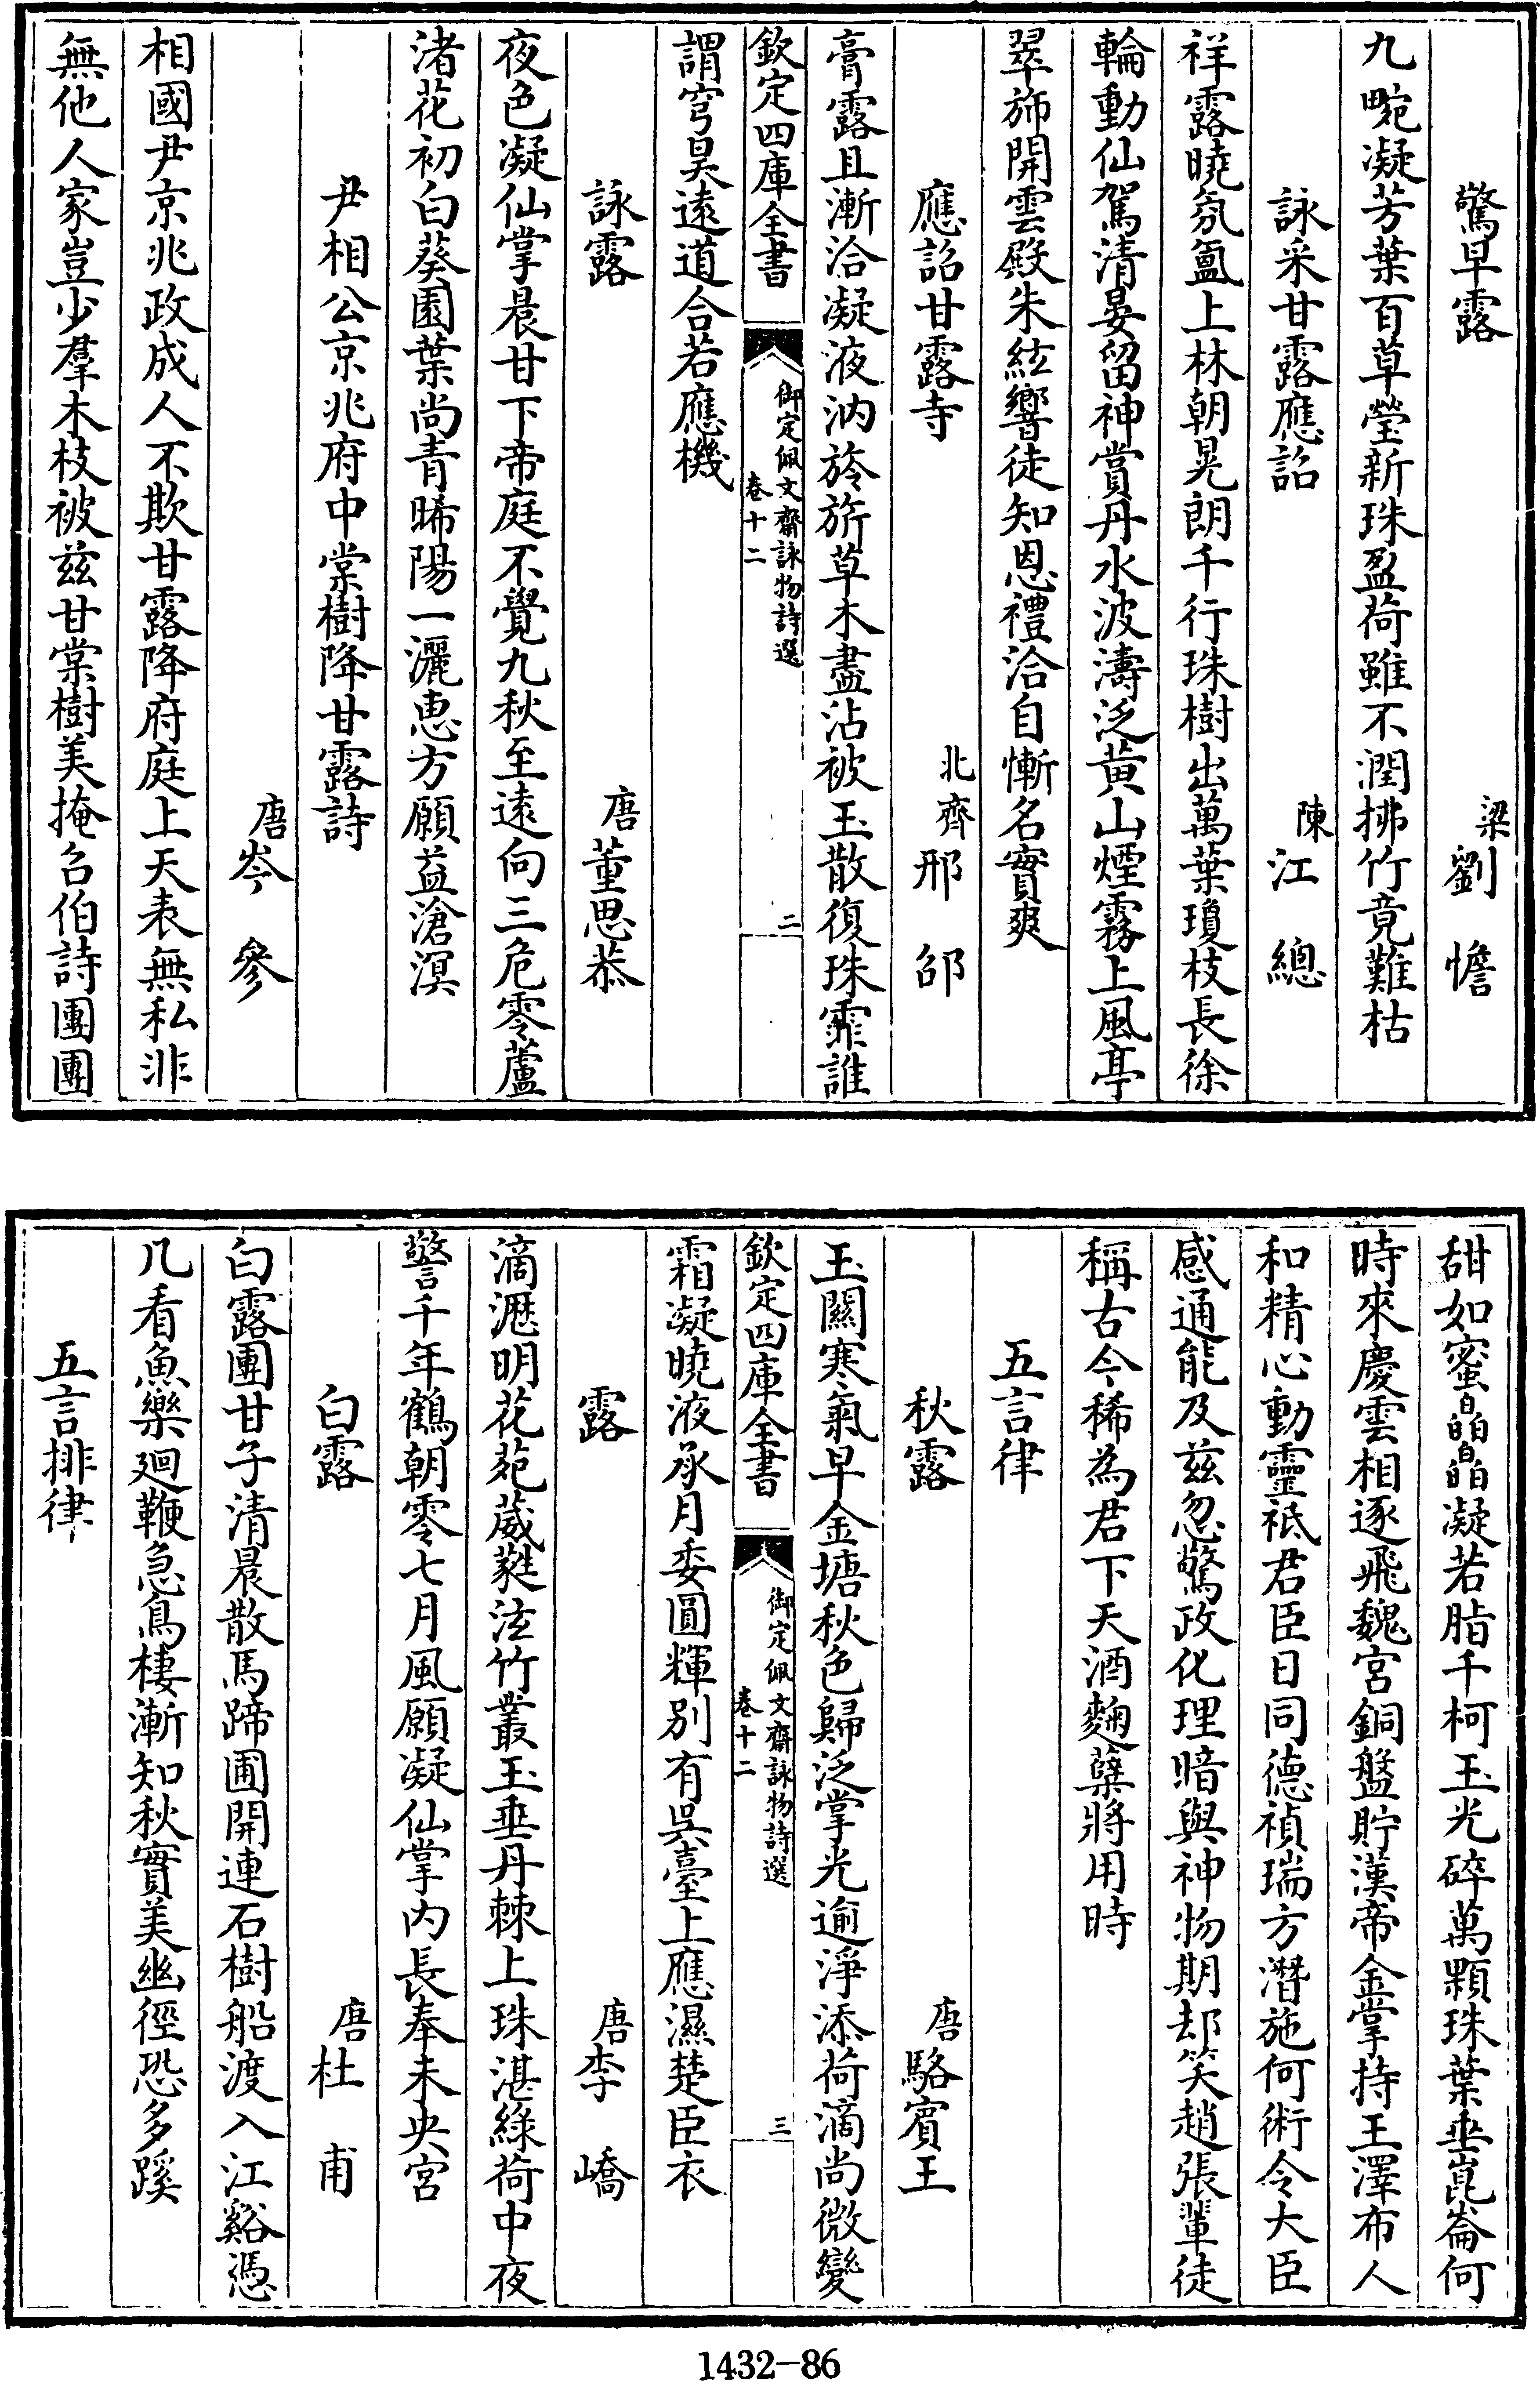 驚早露 梁劉憺
九畹凝芳葉百草瑩新珠盈荷雖不潤拂竹竟難枯
詠采甘露應詔 陳江總
祥露曉氛氳上林朝晃朗千行珠樹出萬葉瓊枝長徐
輪動仙駕清晏留神賞丹水波濤泛黃山煙霧上風亭
翠斾開雲殿朱絃響徒知恩禮洽自慚名實爽
應詔甘露寺 北齊邢邵
膏露且漸洽凝液汭旍旂草木盡沾被玉散復珠霏誰
欽定四庫全書 御定佩文齋詠物詩選 卷十二 二
謂穹昊遠道合若應機
詠露 唐董思恭
夜色凝仙掌晨甘下帝庭不覺九秋至遠向三危零蘆
渚花初白葵園葉尚青晞陽一灑惠方願益滄溟
尹相公京兆府中棠樹降甘露詩
唐岑參
相國尹京兆政成人不欺甘露降府庭上天表無私非
無他人家豈少羣木枝被兹甘棠樹美掩召伯詩團團
甜如蜜皛皛凝若脂千柯玉光碎萬顆珠葉垂崑崙何
時來慶雲相逐飛魏宮銅盤貯漢帝金掌持王澤布人
和精心動靈祇君臣日同德禎瑞方潛施何術令大臣
感通能及兹忽驚政化理暗與神物期却笑趙張輩徒
稱古今稀為君下天酒麴糵將用時
五言律
秋露 唐駱賓王
玉關寒氣早金塘秋色歸泛掌光逾淨添荷滴尚微變
欽定四庫全書 御定佩文齋詠物詩選 卷十二 三
霜凝曉液承月委圓輝別有吳臺上應濕楚臣衣
露 唐李嶠
滴瀝明花苑葳蕤泫竹叢玉垂丹棘上珠湛綠荷中夜
警千年鶴朝零七月風願凝仙掌內長奉未央宮
白露 唐杜甫
白露團甘子清晨散馬蹄圃開連石樹船渡入江谿憑
几看魚樂廻鞭急鳥棲漸知秋實美幽徑恐多蹊
五言排律
1432-86